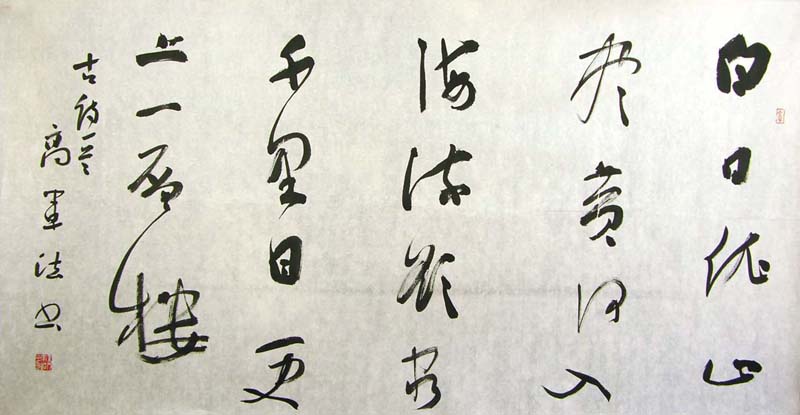 白日依山
尽黄河入
海流欲穷
千里目更
上一层楼
古诗一首
高軍法书